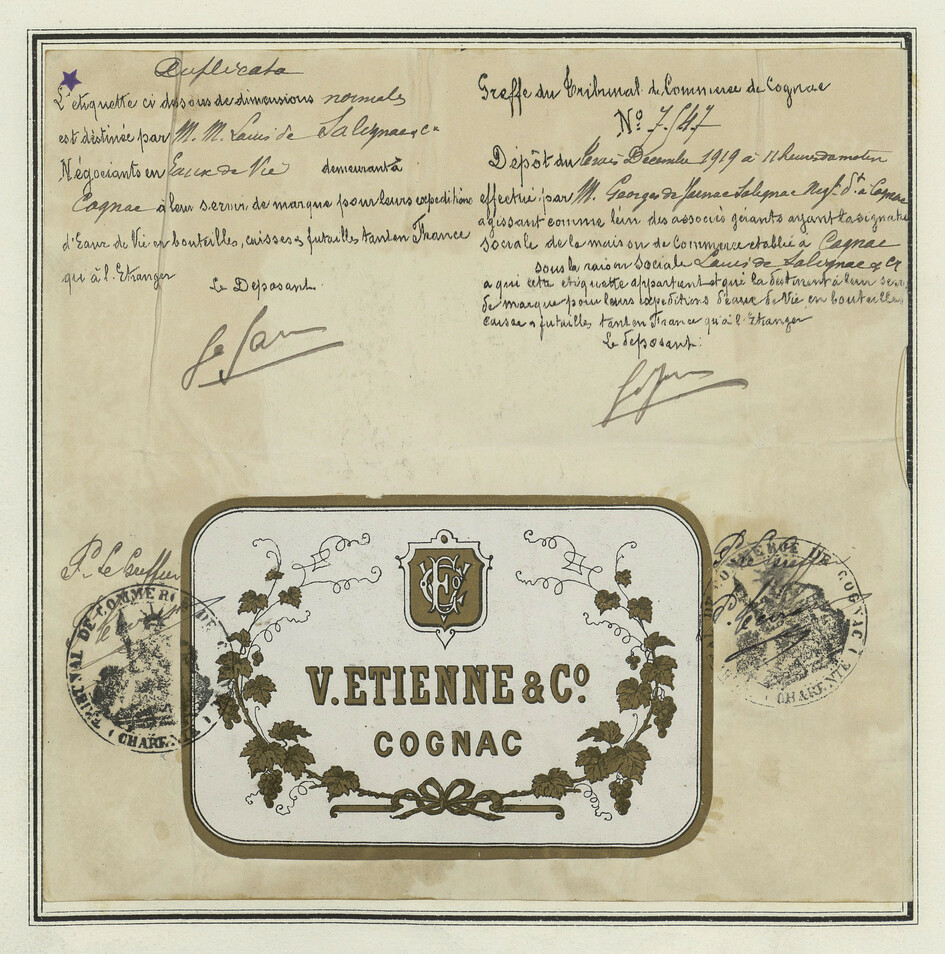 Duplicata
L'etiquette ci dessous de dimensions normales
est destinée par M. M. Louis de Salignac & Cie
Négociants en Eaux de Vie demeurant à
Cognac à leur servir de marque pour leurs expeditions
d'Eaux de Vie en bouteilles, caisses & futailles tant en France
qu'à l'Etranger
Le Deposant.
Greffe du Tribunal de Commerce de Cognac
No 7547
Dépôt du trois Decembre 1919 à 11 heures du matin
effectué par M. Georges de Jarnac Salignac Negt. dt. à Cognac
agissant comme l'un des associés gérants ayant la signature
sociale de la maison de Commerce etablie à Cognac
sous la raison sociale Louis de Salignac & Cie
a qui cette etiquette appartient et qui la destinent à leur servir
de marque pour leurs expeditions d'eaux de Vie en bouteilles
caisses & futailles tant en France qu'à l'Etranger
Le deposant:
P. le Greffier
TRIBUNAL DE COMMERCE DE
(CHARENTE)
P. le Greffier
DE COMMERCE DE COGNAC
(CHARENTE)
V. ETIENNE & Co
COGNAC